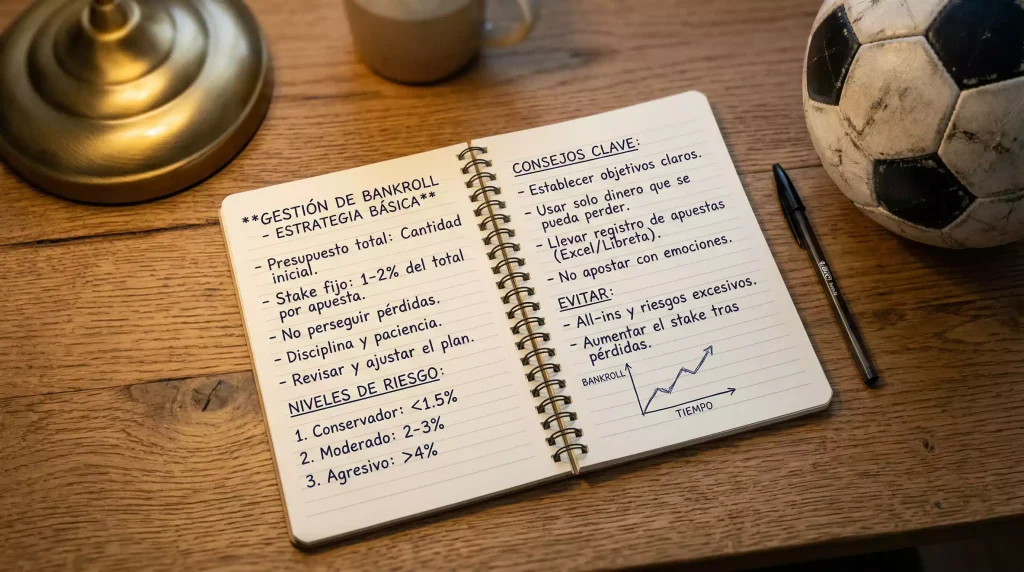 **GESTIÓN DE BANKROLL
- ESTRATEGIA BÁSICA**
- Presupuesto total: Cantidad
inicial.
- Stake fijo: 1-2% del total
por apuesta.
- No perseguir pérdidas.
- Disciplina y paciencia.
- Revisar y ajustar el plan.
NIVELES DE RIESGO:
1. Conservador: <1.5%
2. Moderado: 2-3%
3. Agresivo: >4%
CONSEJOS CLAVE:
- Establecer objetivos claros.
- Usar solo dinero que se
pueda perder.
- Llevar registro de apuestas
(Excel/Libreta).
- No apostar con emociones.
EVITAR:
- All-ins y riesgos excesivos.
- Aumentar el stake tras
pérdidas.
BANKROLL
TIEMPO